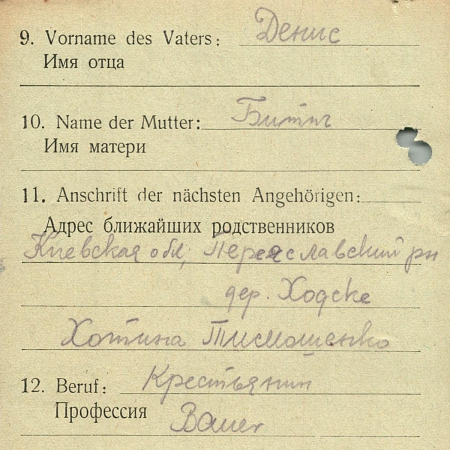 9. Vorname des Vaters: Денис
Имя отца
10. Name der Mutter:
Имя матери
11. Anschrift der nächsten Angehörigen:
Адрес ближайших родственников
Киевская обл, Переяславский рн
дер. Ходске
Хотина Тимошенко
12. Beruf: Крестьянин
Профессия Bauer